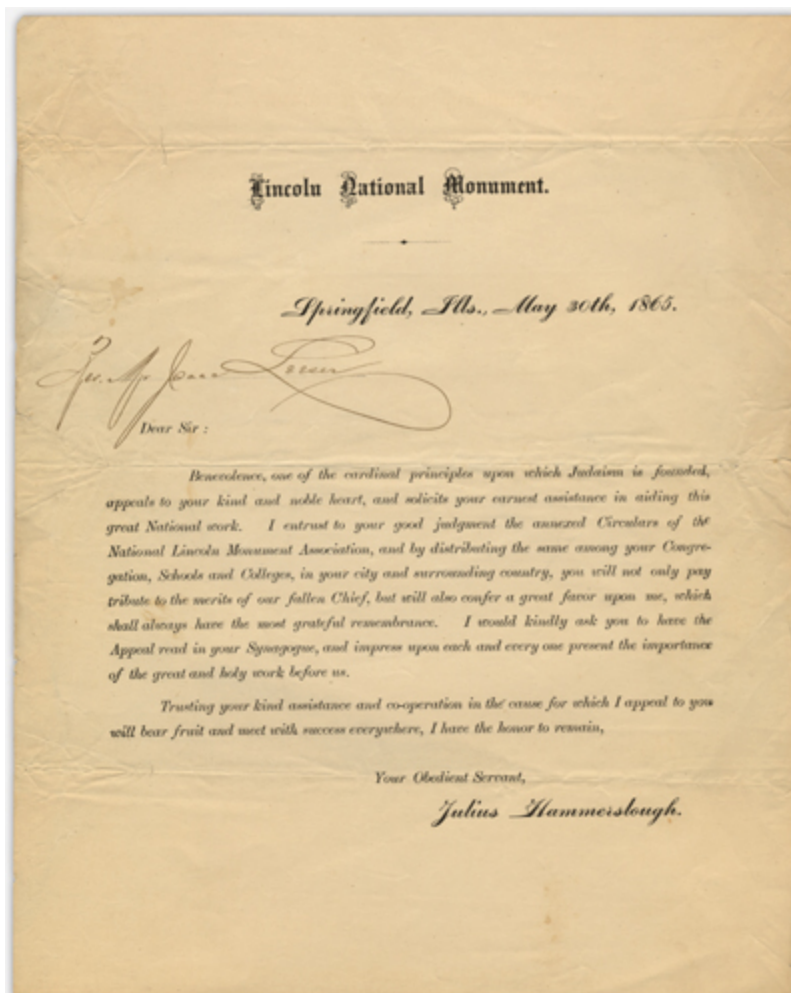 Lincoln National Monument.
Springfield, Ills., May 30th, 1865.
Rev. Mr Isaac Leeser
Dear Sir :
Benevolence, one of the cardinal principles upon which Judaism is founded,
appeals to your kind and noble heart, and solicits your earnest assistance in aiding this
great National work. I entrust to your good judgment the annexed Circulars of the
National Lincoln Monument Association, and by distributing the same among your Congre-
gation, Schools and Colleges, in your city and surrounding country, you will not only pay
tribute to the merits of our fallen Chief, but will also confer a great favor upon me, which
shall always have the most grateful remembrance. I would kindly ask you to have the
Appeal read in your Synagogue, and impress upon each and every one present the importance
of the great and holy work before us.
Trusting your kind assistance and co-operation in the cause for which I appeal to you
will bear fruit and meet with success everywhere, I have the honor to remain,
Your Obedient Servant,
Julius Hammerslough.